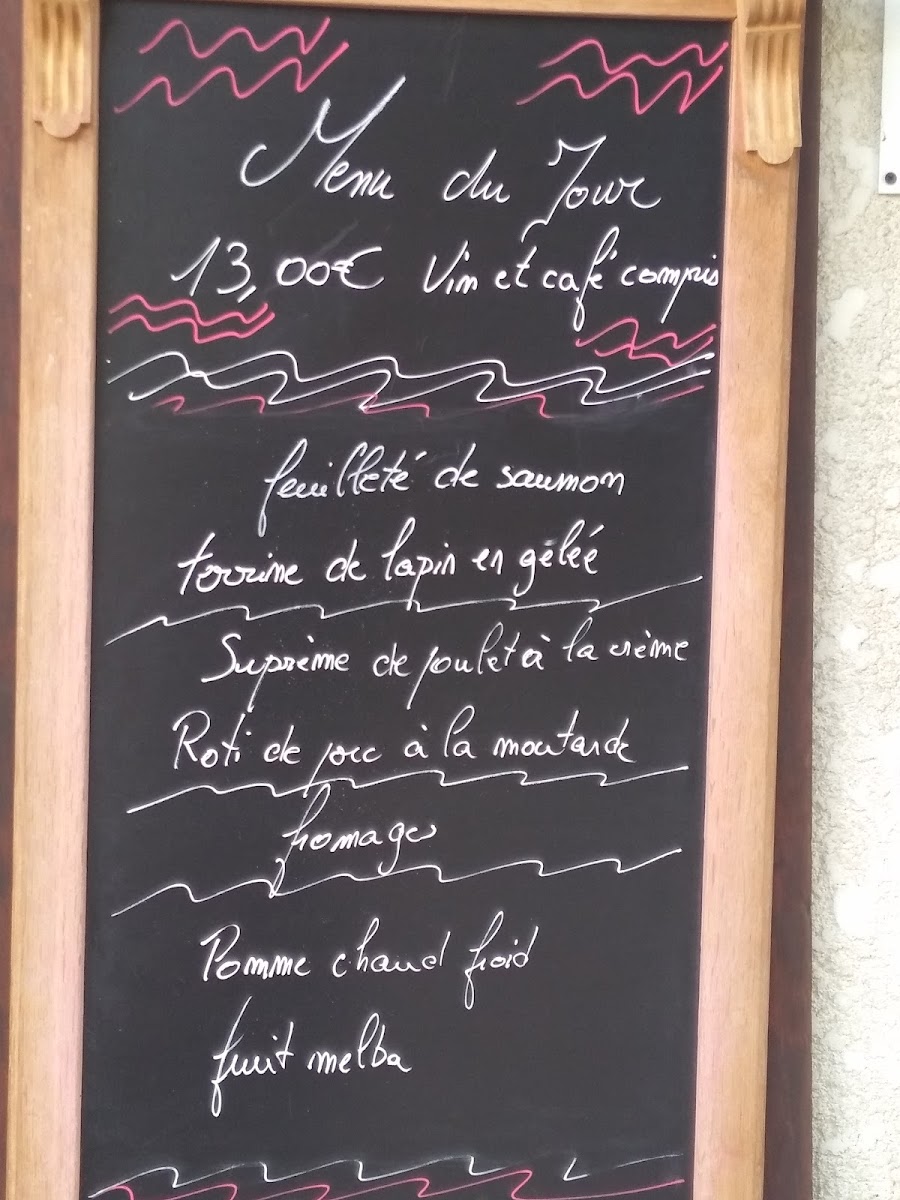 Menu du Jour
13,00€ Vin et café compris
feuilleté de saumon
terrine de lapin en gêléé
Suprème de poulet à la crème
Roti de porc à la moutarde
fromages
Pomme chaud froid
fruit melba